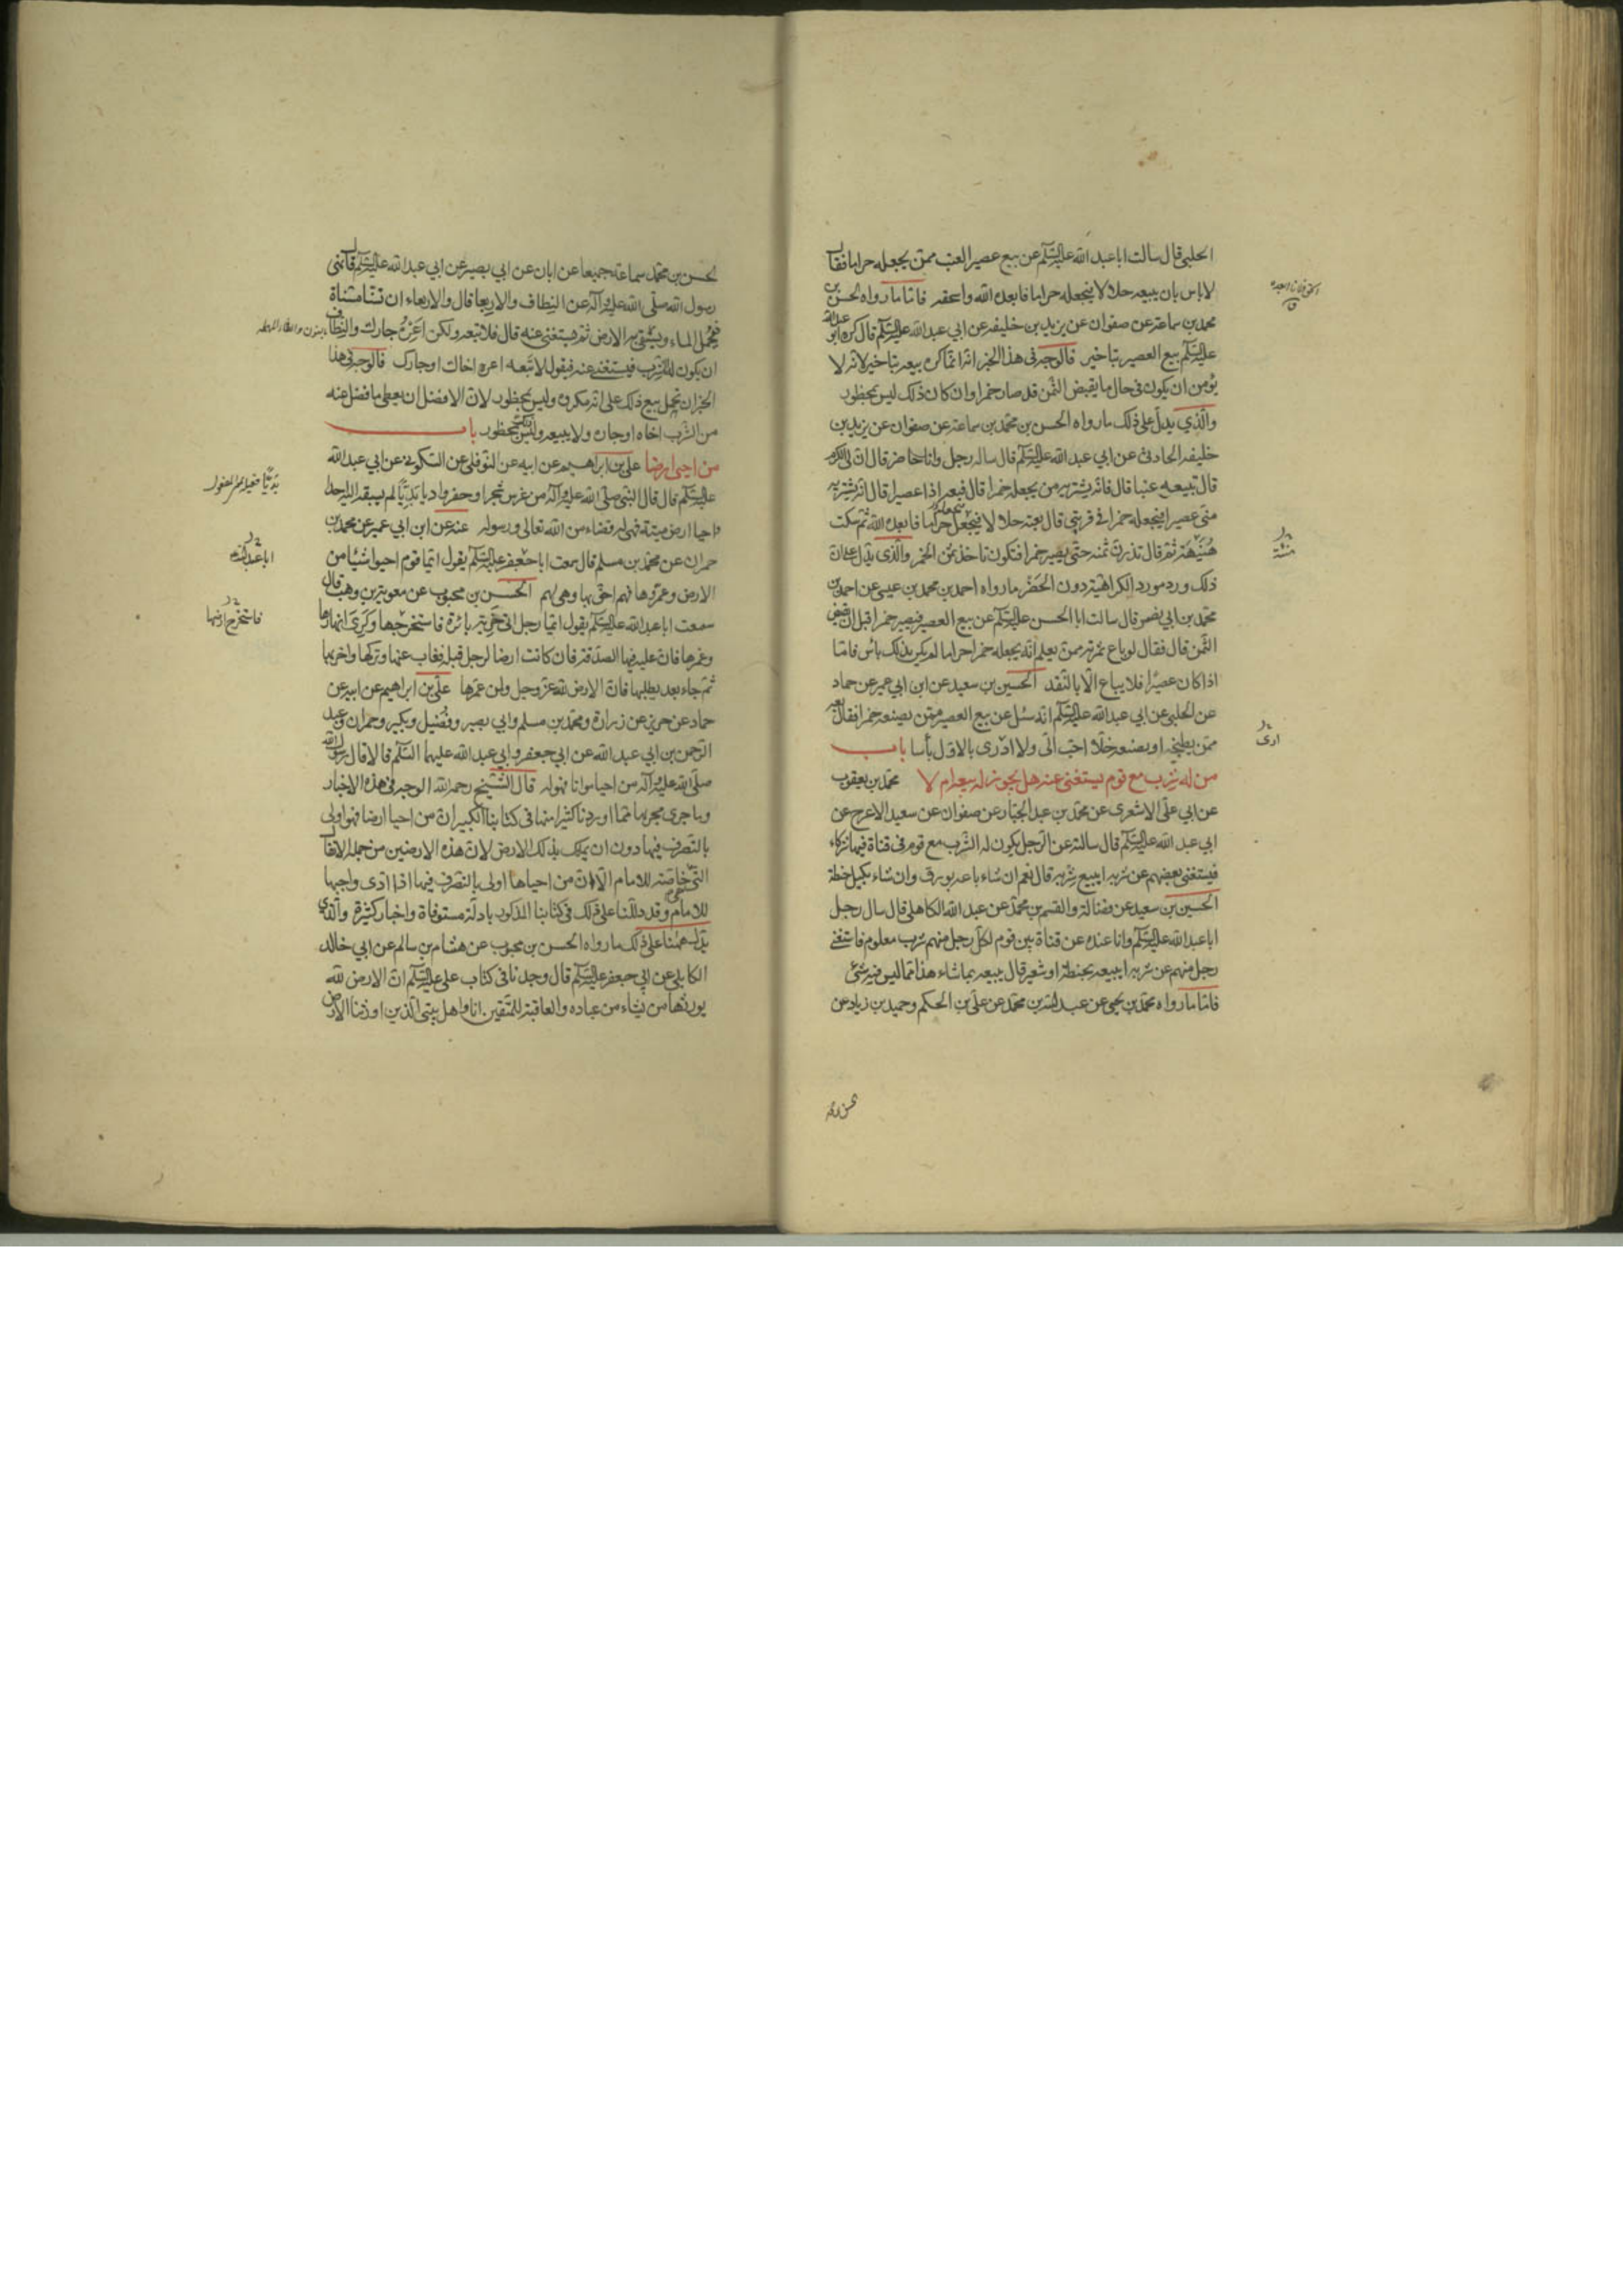 الحلبي قال سالت ابا عبد الله عليه السلام عن بيع عصير العنب ممن يجعله حراما فقال
لا باس بان يبيعه حلالا فيجعله حراما فابعده الله واسحقه فاما ما رواه الحسن بن
محمد بن سماعة عن صفوان عن يزيد بن خليفه عن ابي عبد الله عليه السلام قال كره ابو عبد الله
عليه السلام بيع العصير بتاخير فالوجه في هذا الخبر انه انما كره بيعه بتاخير لانه لا
يؤمن ان يكون في حال ما يقبض الثمن قد صار خمرا وان كان ذلك ليس بمحظور
والذي يدل على ذلك ما رواه الحسن بن محمد بن سماعة عن صفوان عن يزيد بن
خليفه الحارثي عن ابي عبد الله عليه السلام قال ساله رجل وانا حاضر قال ان لي الكرم
قال تبيعه عنبا قال فانه يشتريه من يجعله خمرا قال فبعه اذا عصيرا قال انه يشتريه
مني عصيرا فيجعله خمرا في قربتي قال بعته حلالا فيجعله حراما فابعده الله ثم سكت
هنيهة ثم قال تذرن ثمنه حتى يصير خمرا فتكون تاخذ ثمن الخمر والذي يدل على ان
ذلك ورد مورد الكراهية دون الحضر ما رواه احمد بن محمد بن عيسى عن احمد بن
محمد بن ابي نصر قال سالت ابا الحسن عليه السلام عن بيع العصير فيصير خمرا قبل ان يقبض
الثمن قال فقال لو باع ثمرته ممن يعلم انه يجعله خمرا حراما لم يكن بذلك باس فاما
اذا كان عصيرا فلا يباع الا بالنقد الحسين بن سعيد عن ابن ابي عمير عن حماد
عن الحلبي عن ابي عبد الله عليه السلام انه سئل عن بيع العصير ممن يصنعه خمرا فقال بعه
ممن يطبخه او يصنعه خلا احب الى ولا ادرى بالاول بأسا باب
من له شرب مع قوم يستغنى عنه هل يجوز له بيعه ام لا محمد بن يعقوب
عن ابي على الاشعرى عن محمد بن عبد الجبار عن صفوان عن سعيد الاعرج عن
ابي عبد الله عليه السلام قال سالته عن الرجل يكون له الشرب مع قوم في قناة فيها شركاء
فيستغنى بعضهم عن شربه ايبيع شربه قال نعم ان شاء باعه بورق وان شاء بكيل حنطة
الحسين بن سعيد عن فضالة والقسم بن محمد عن عبد الله الكاهلي قال سال رجل
ابا عبد الله عليه السلام وانا عنده عن قناة بين قوم لكل رجل منهم شرب معلوم فاستغنى
رجل منهم عن شربه ايبيعه بحنطة او شعير قال يبيعه بما شاء هذا مما ليس فيه شئ
فاما ما رواه محمد بن يحيى عن عبد الله بن محمد عن علي بن الحكم وحميد بن زياد عن
ادى
الحسن بن محمد سماعة جميعا عن ابان عن ابي بصير عن ابي عبد الله عليه السلام قال نهى
رسول الله صلى الله عليه وآله عن النطاف والاربعا قال والاربعاء ان تسنا مسناة
فتحمل الماء ويستقى به الارض ثم يستغنى عنه قال فلا تبعه ولكن اعره جارك والنطاف
ان يكون له الشرب فيستغنى عنه فيقول لا تبعه اعره اخاك او جارك فالوجه في هذا
الخبر ان نحمل بيع ذلك على انه مكروه وليس بمحظور لان الافضل ان يعطي ما فضل عنه
من الشرب اخاه او جاره ولا يبيعه وليس بمحظور باب
من احيى ارضا علي بن ابراهيم عن ابيه عن النوفلي عن السكوني عن ابي عبد الله
عليه السلام قال قال النبي صلى الله عليه وآله من غرس شجرا او حفر واديا بديا لم يسبقه اليه احد
واحيا ارض ميتة فهى له قضاء من الله تعالى ورسوله عنه عن ابن ابي عمير عن محمد بن
حمران عن محمد بن مسلم قال سمعت ابا جعفر عليه السلام يقول ايما قوم احيوا شيئا من
الارض وعمروها فهم احق بها وهي لهم الحسن بن محبوب عن معوية بن وهب قال
سمعت ابا عبد الله عليه السلام يقول ايما رجل اتى خربة بائرة فاستخرجها وكرى انهارها
وعمرها فان عليه فيها الصدقة فان كانت ارضا لرجل قبله فغاب عنها وتركها واخربها
ثم جاء بعد يطلبها فان الارض لله عز وجل ولمن عمرها علي بن ابراهيم عن ابيه عن
حماد عن حريز عن زرارة ومحمد بن مسلم وابي بصير وفضيل وبكير وحمران وعبد
الرحمن بن ابي عبد الله عن ابي جعفر وابي عبد الله عليهما السلام قالا قال رسول الله
صلى الله عليه وآله من احيا مواتا فهو له قال الشيخ رحمه الله الوجه في هذه الاخبار
وما جرى مجريها مما اوردنا كثيرا منها في كتابنا الكبير ان من احيا ارضا فهو اولى
بالتصرف فيها دون ان يملك بذلك الارض لان هذه الارضين من جملة الانفال
التي خاصة للامام الا ان من احياها اولى بالتصرف فيها اذا ادى واجبها
للامام وقد دللنا على ذلك في كتابنا المذكور بادلة مستوفاة واخبار كثيرة والذي
يدل ههنا على ذلك ما رواه الحسن بن محبوب عن هشام بن سالم عن ابي خالد
الكابلي عن ابي جعفر عليه السلام قال وجدنا في كتاب علي عليه السلام ان الارض لله
يورثها من يشاء من عباده والعاقبة للمتقين انا واهل بيتي الذين اورثنا الارض
ابا عبد الله